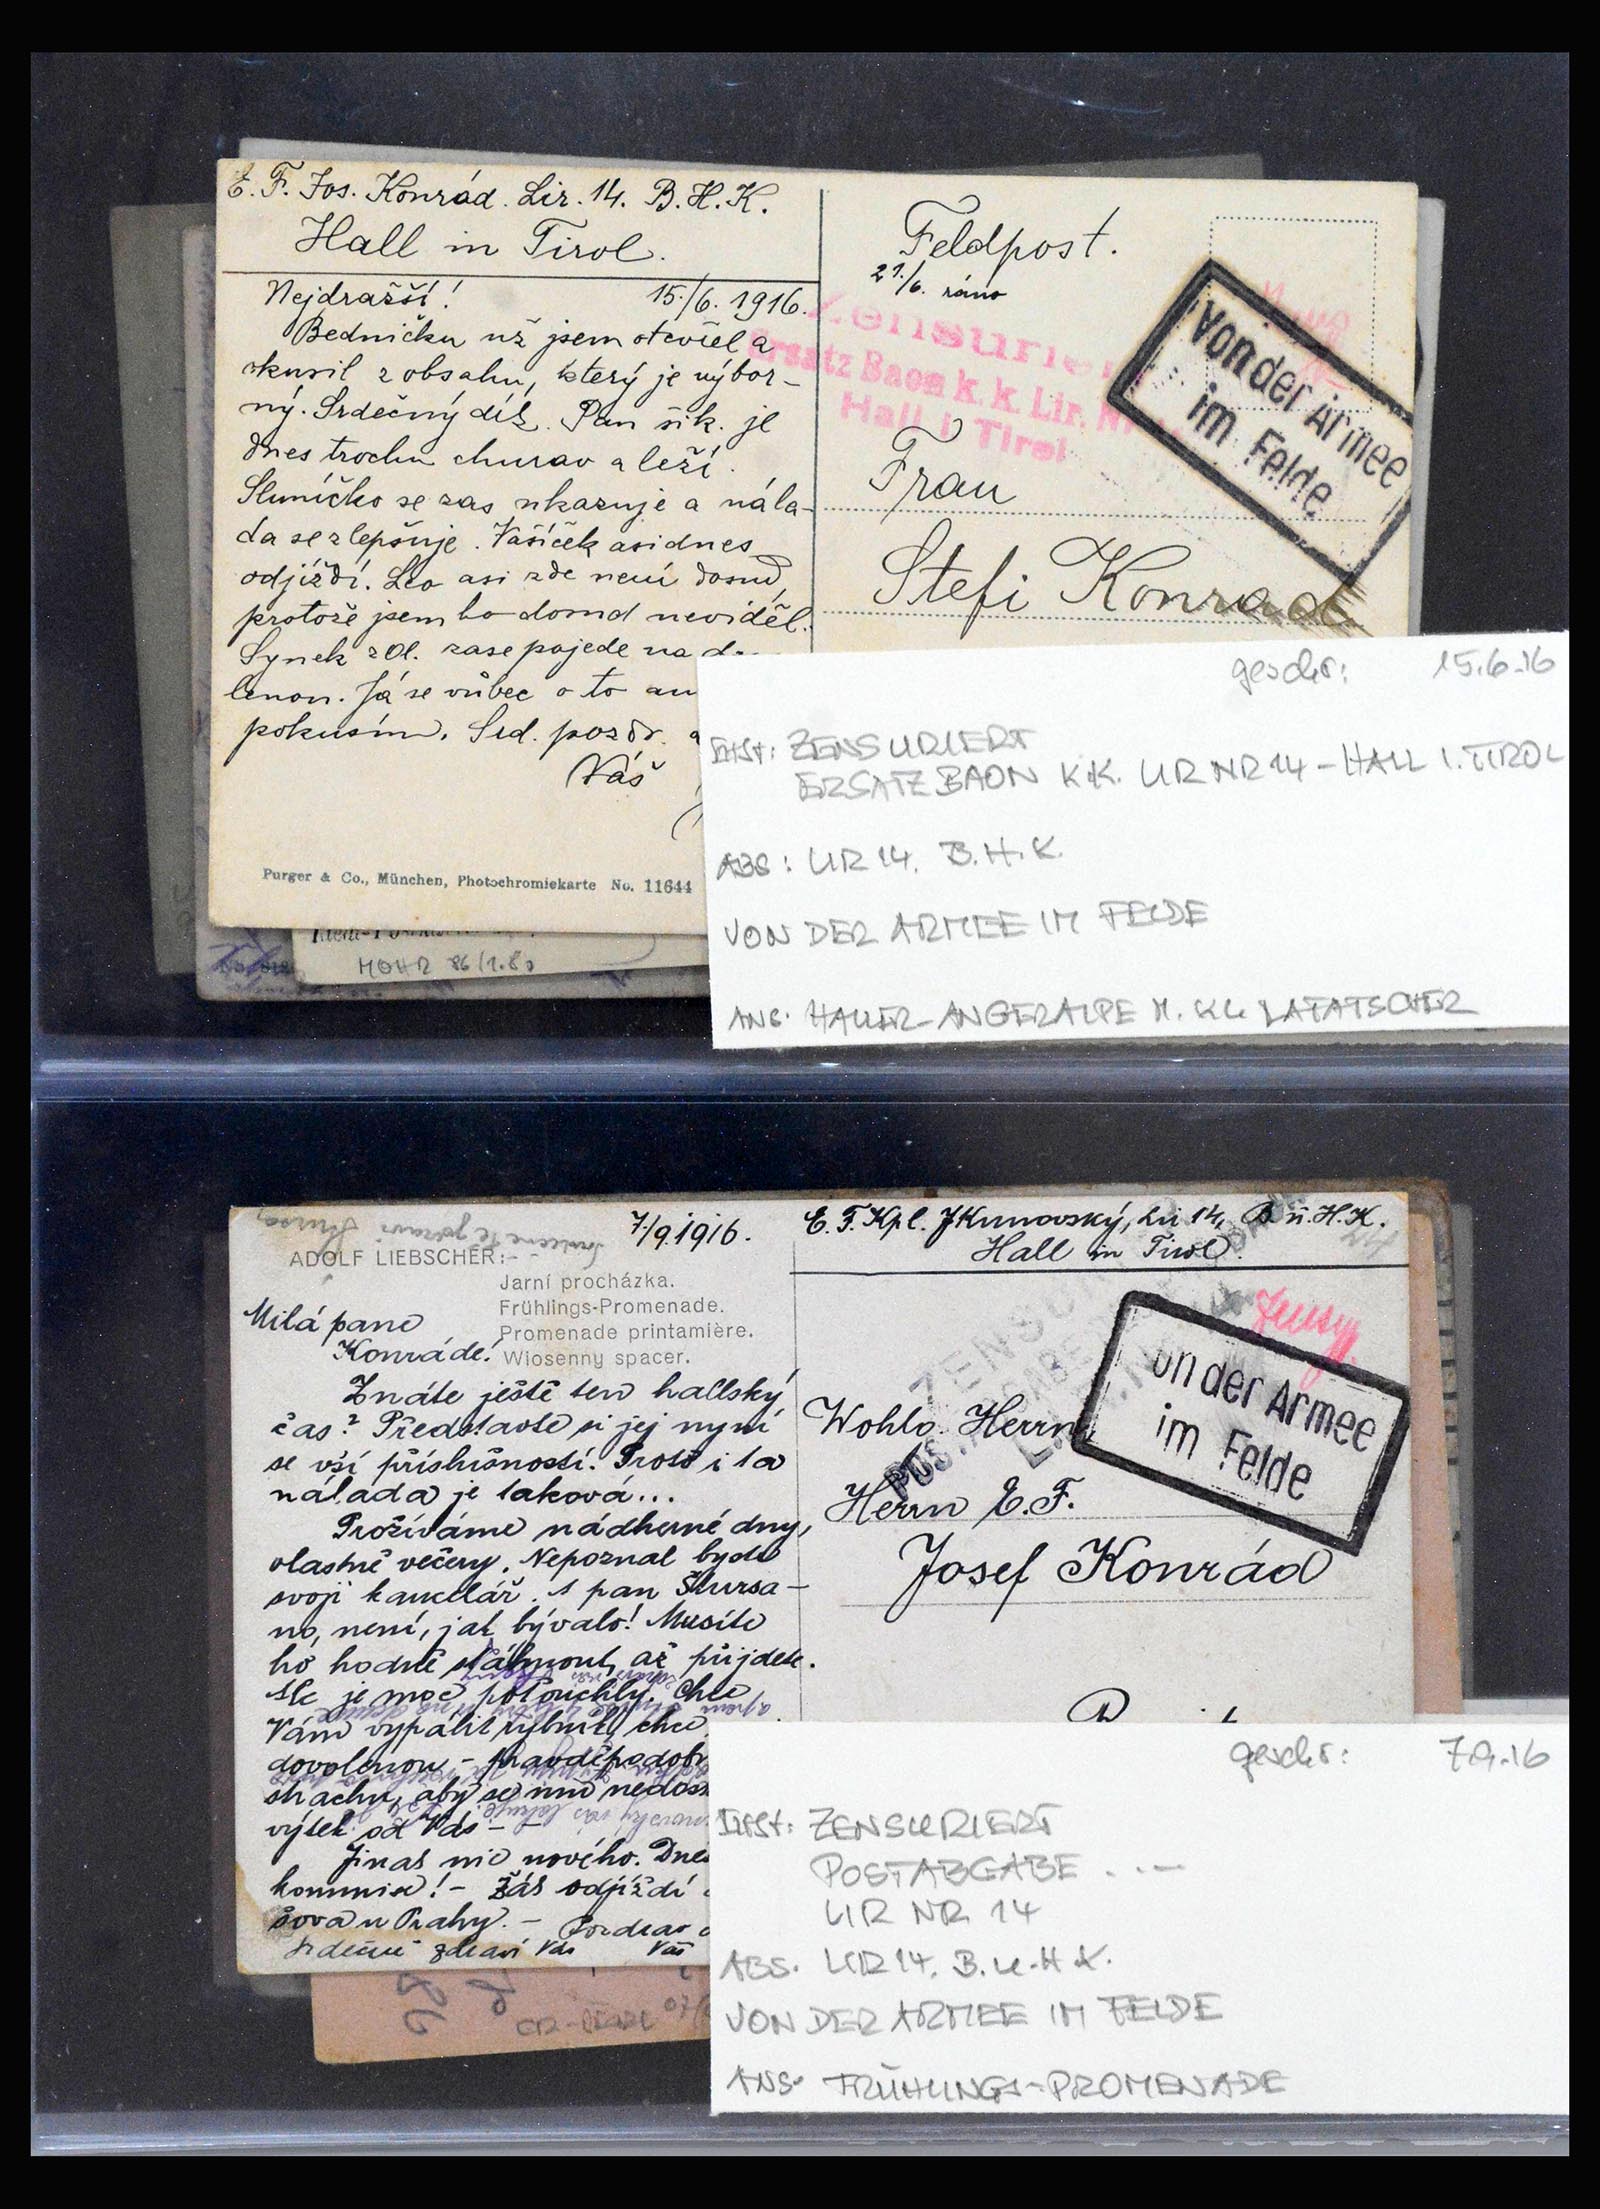 E. F. Jos. Konrád. Lir. 14. B. H. K.
Hall in Tirol.
Nejdražší! 15./6. 1916.
Bedničku už jsem otevřel a
zkusil z obsahu, který je výbor-
ný. Srdečný dík. Pan šik. je
dnes trochu churav a leží.
Sluníčko se zas ukazuje a nála-
da se zlepšuje. Vašíček asi dnes
odjíždí. Leo asi zde není dosud,
protože jsem ho dosud neviděl.
Synek zase pojede na
lenou. Já se vůbec o to
pokusím. Srd. pozdr. a
Váš
Purger & Co., München, Photochromiekarte No. 11644
Feldpost.
21./6. ráno
Zensurier
Ersatz Baon k. k. Lir. Nr
Hall i. Tirol
Von der Armee
im Felde
Frau
Stefi Konrad
MOHR 86/1.80
geschr: 15.6.16
ZENSURIERT
ERSATZ BAON K.K. LIR NR 14 - HALL I. TIROL
ABS: LIR 14. B.H.K.
VON DER ARMEE IM FELDE
ANS: HALLER-ANGERALPE M. KL. LAFATSCHER
7./9.1916.
ADOLF LIEBSCHER:
Jarní procházka.
Frühlings-Promenade.
Promenade printamière.
Wiosenny spacer.
Milý pane
Konráde!
Znáte ještě ten hallský
čas? Představte si jej nyní
se vší příslušností. Proto i ta
nálada je taková...
Prožíváme nádherné dny,
vlastně večery. Nepoznal byste
svoji kancelář. A pan Štursa -
no, není, jak bývalo! Musíte
ho hodně stáhnout, až přijdete.
Je moc potouchlý. Chce
Vám vypálit rybník, chce
dovolenou - pravděpodob
strachu, aby se mu nedos
výtek od Vás - -
Jinak nic nového. Dnes
komise! - Žák odjíždí
u Prahy. - Pozdrav
Srdečně zdraví Vás Váš
E. F. Kpl. JKunovský, Lir 14, B u. H. K.
Hall in Tirol.
ZENS
POST
on der Armee
im Felde
Wohlg. Herrn
Herrn E. F.
Josef Konrád
geschr: 7.9.16
ZENSURIERT
POSTABGABE . . -
LIR NR 14
ABS. LIR 14. B. u. H. K.
VON DER ARMEE IM FELDE
ANS. FRÜHLINGS-PROMENADE